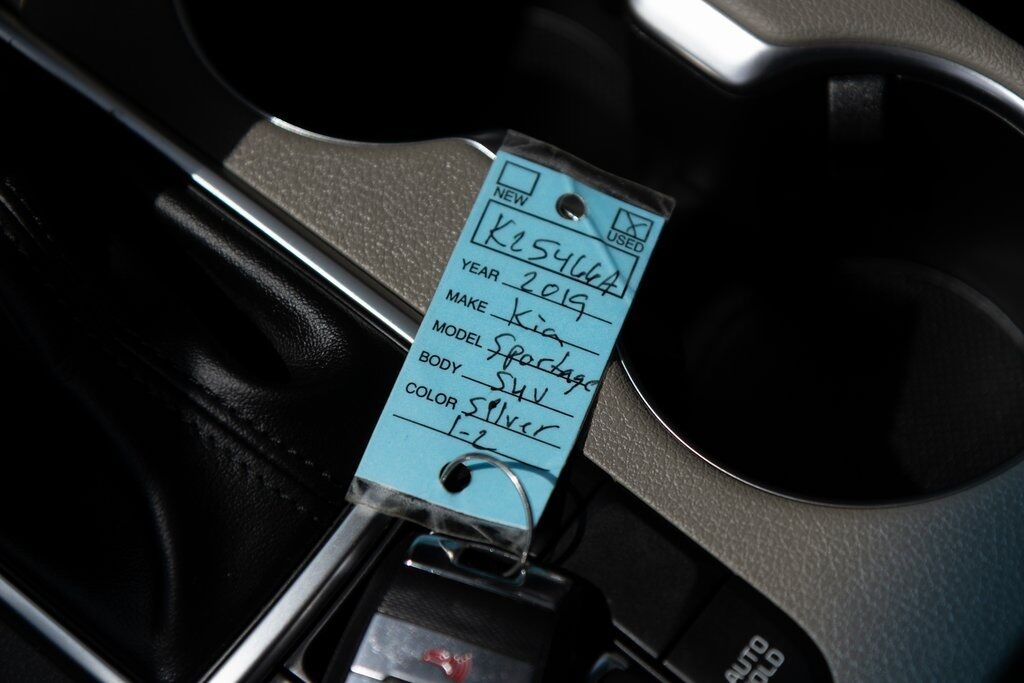 NEW
USED
K25466A
YEAR 2019
MAKE Kia
MODEL Sportage
BODY SUV
COLOR Silver
1-2
AUTO